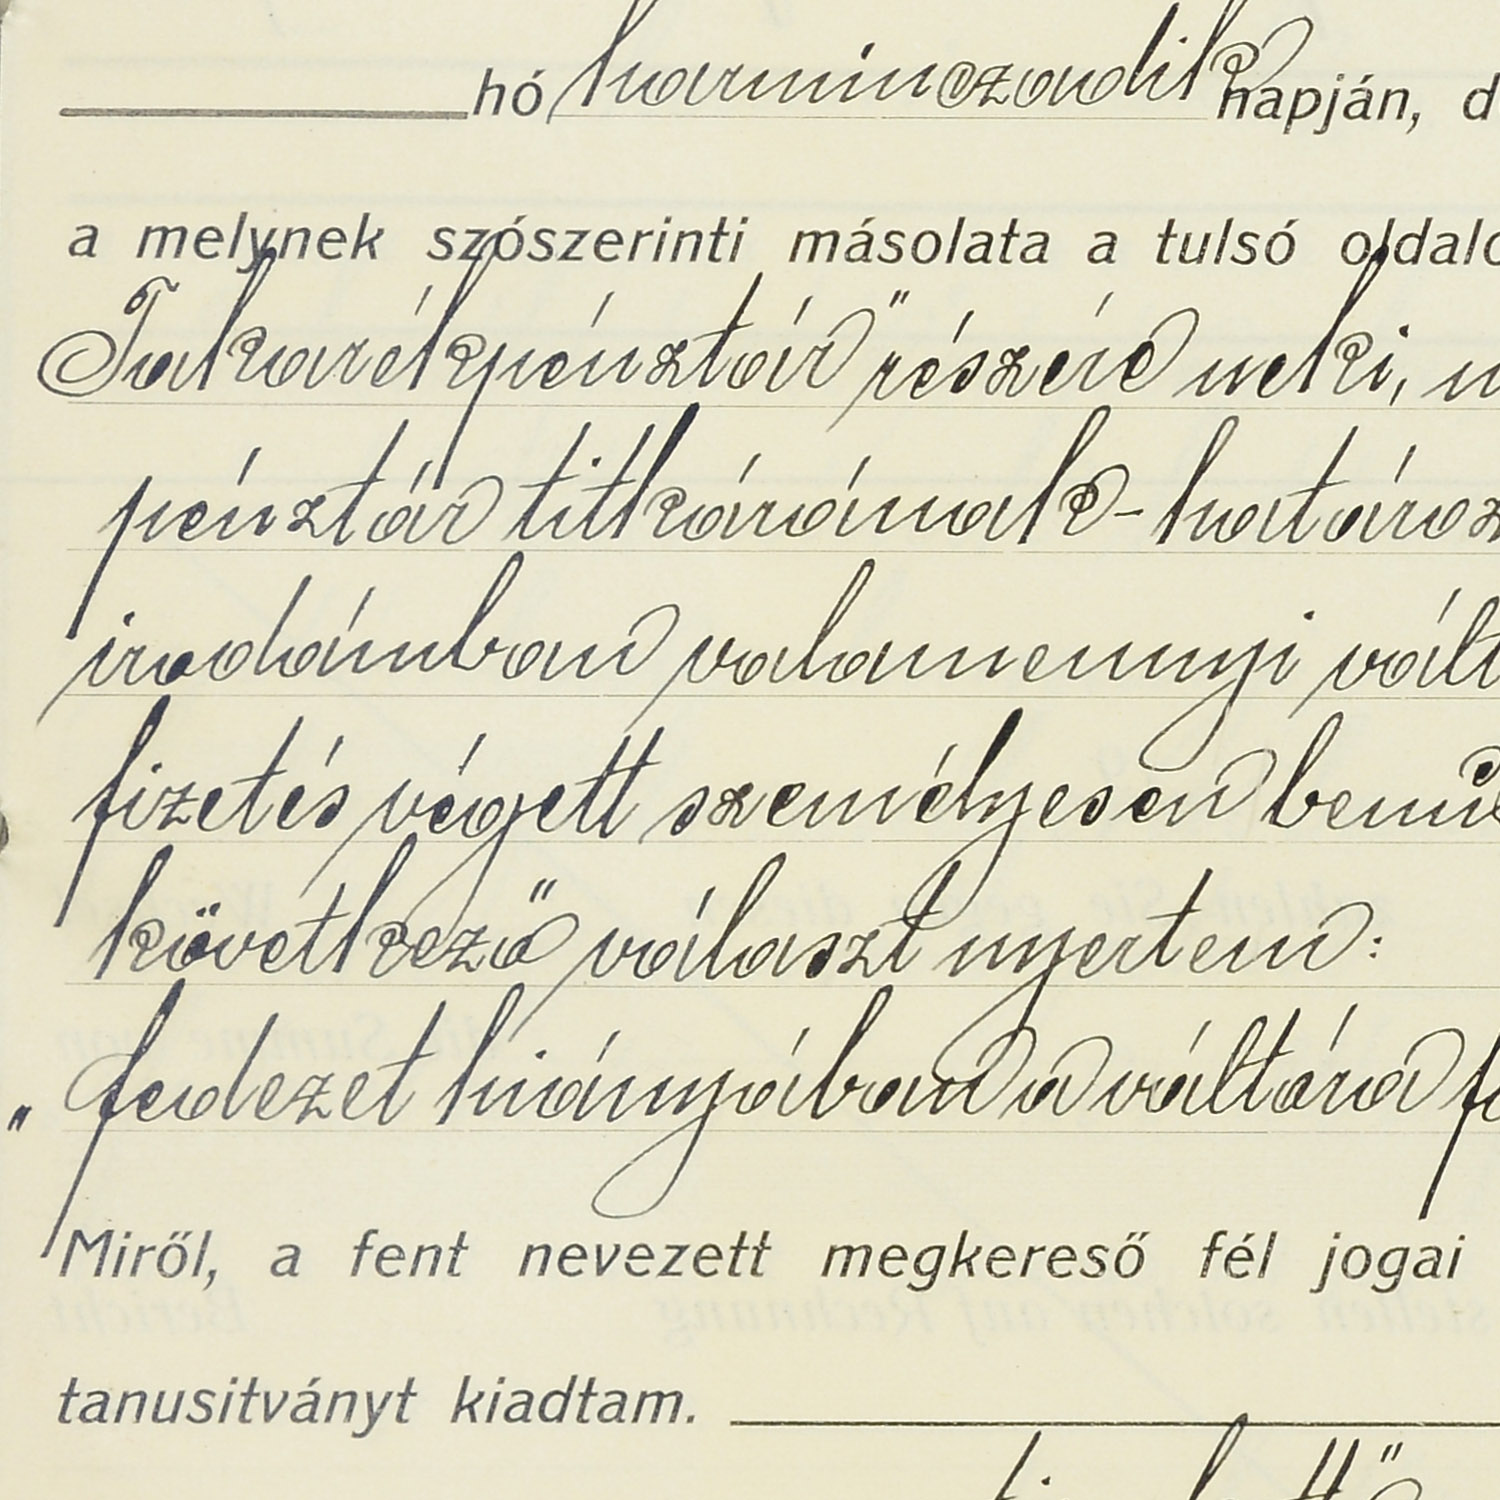 hó harminczadik napján, d
a melynek szószerinti másolata a tulsó oldalo
Takarékpénztár" részére neki, 
pénztár titkárának - határoz
irodámban valamennyi vált
fizetés végett személyesen bemu
következő választ nyertem:
"fedezet hiányában a váltóra f
Miről, a fent nevezett megkereső fél jogai
tanusitványt kiadtam.